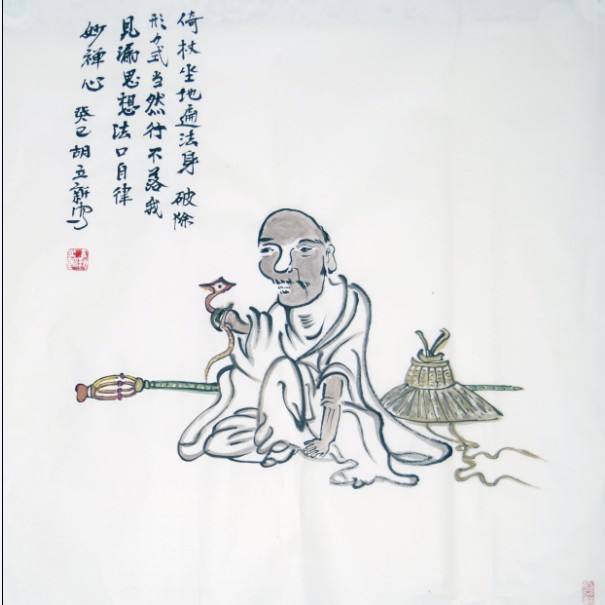 倚杖坐地遍法身 破除
形方式当然行不落我
见漏思想法口自律
妙禅心 癸巳 胡五新写